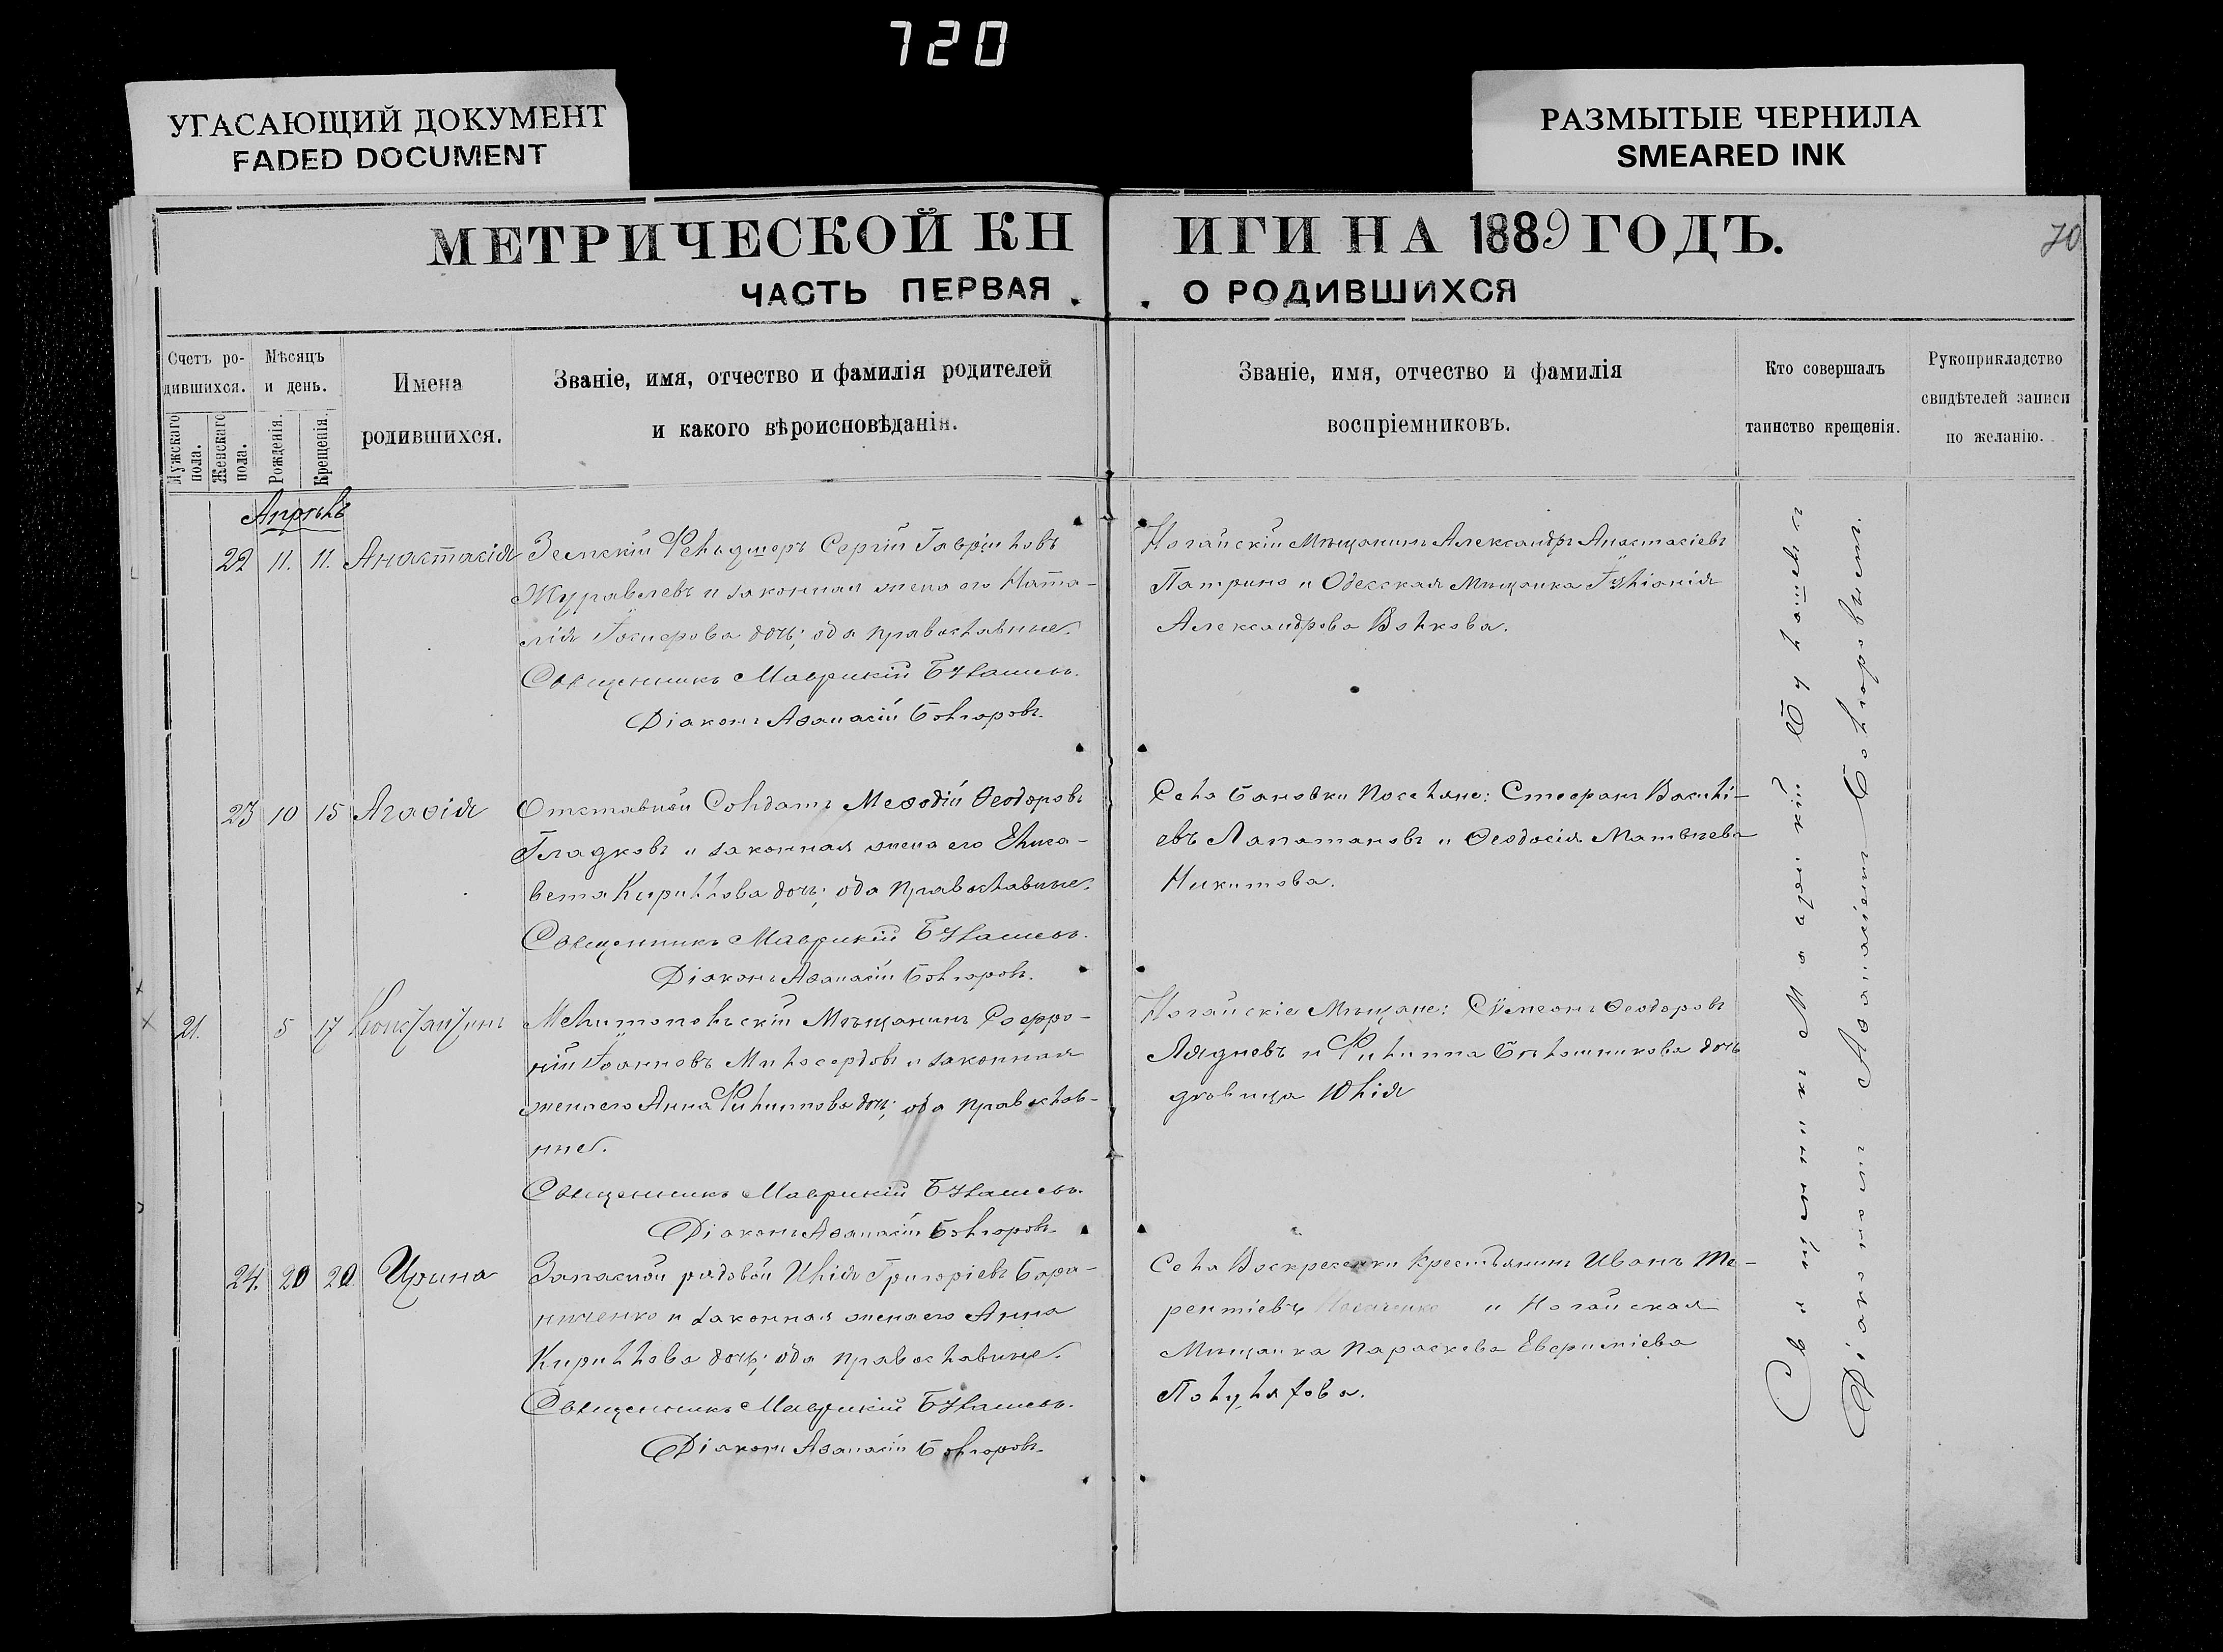 720
УГАСАЮЩИЙ ДОКУМЕНТ
FADED DOCUMENT
РАЗМЫТЫЕ ЧЕРНИЛА
SMEARED INK
МЕТРИЧЕСКОЙ КНИГИ НА 1889 ГОДЪ.
70
ЧАСТЬ ПЕРВАЯ. . О РОДИВШИХСЯ
Счетъ ро-
дившихся.
Мужскаго пола.
Женскаго пола.
Мѣсяцъ
и день.
Рожденія.
Крещенія.
Имена
родившихся.
Званіе, имя, отчество и фамилія родителей
и какого вѣроисповѣданія.
Званіе, имя, отчество и фамилія
воспріемниковъ.
Кто совершалъ
таинство крещенія.
Рукоприкладство
свидѣтелей записи
по желанію.
Апрѣль
22 11. 11. Анастасія
Земскій Фельдшеръ Сергій Гавріиловъ
Журавлевъ и законная жена его Ната-
лія дочь; оба православные.
Священникъ Маврикій Булашевъ.
Діаконъ Аѳанасій Болгоровъ.
Ногайскій Мѣщанинъ Александръ Анастасіевъ
Патрино и Одесская Мѣщанка Іуліанія
Александрова Волкова.
23 10 15 Агаѳія
Отставной Солдатъ Меѳодій Ѳеодоровъ
Гладковъ и законная жена его Елиса-
вета Кириллова дочь; оба православные.
Священникъ Маврикій Булашевъ.
Діаконъ Аѳанасій Болгоровъ.
Села Бановки Поселяне: Стефанъ Васили-
евъ Лапатановъ и Ѳеодосія Матвѣева
Никитова.
21. 5 17 Константинъ
Мелитопольскій Мѣщанинъ Софро-
ній Іоанновъ Милосердовъ и законная
жена его Анна Филиппова дочь; оба православ-
ные.
Священникъ Маврикій Булашевъ.
Діаконъ Аѳанасій Болгоровъ.
Ногайскіе Мѣщане: Сѵмеонъ Ѳеодоровъ
Лядневъ и Филиппа Бѣлошникова дочь
дѣвица Юлія
24. 20 20 Ирина
Запасной рядовой Илія Григоріевъ Бара-
ниченко и законная жена его Анна
Кириллова дочь; оба православные.
Священникъ Маврикій Булашевъ.
Діаконъ Аѳанасій Болгоровъ.
Села Воскресенки Крестьянинъ Иванъ Те-
рентіевъ и Ногайская
Мѣщанка Параскева Евфиміева
Полуляхова.
Священникъ Маврикій Булашевъ
Діакономъ Аѳанасіемъ Болгоровымъ.